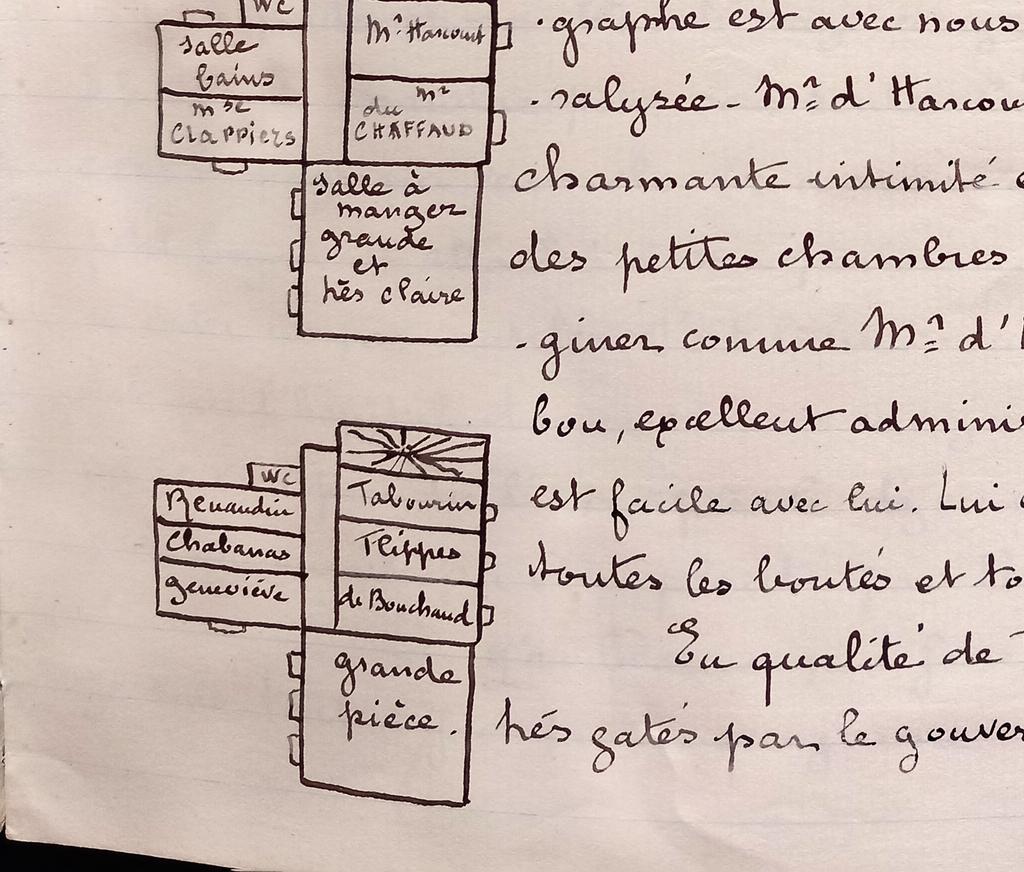 WC
salle
bains
Mr Harcourt
mse
Clappiers
mr
du
CHAFFAUD
salle à
manger
grande
et
très claire
WC
Renaudin
Chabanas
geneviève
Tabourin
Flippes
de Bouchaud
grande
pièce.
-graphe est avec nous
-ralysée - Mr d'Harcou
charmante intimité
des petites chambres
-giner comme Mr d'
bon, excellent admini
est facile avec lui. Lui
toutes les bontés et to
En qualité de
très gatés par le gouver